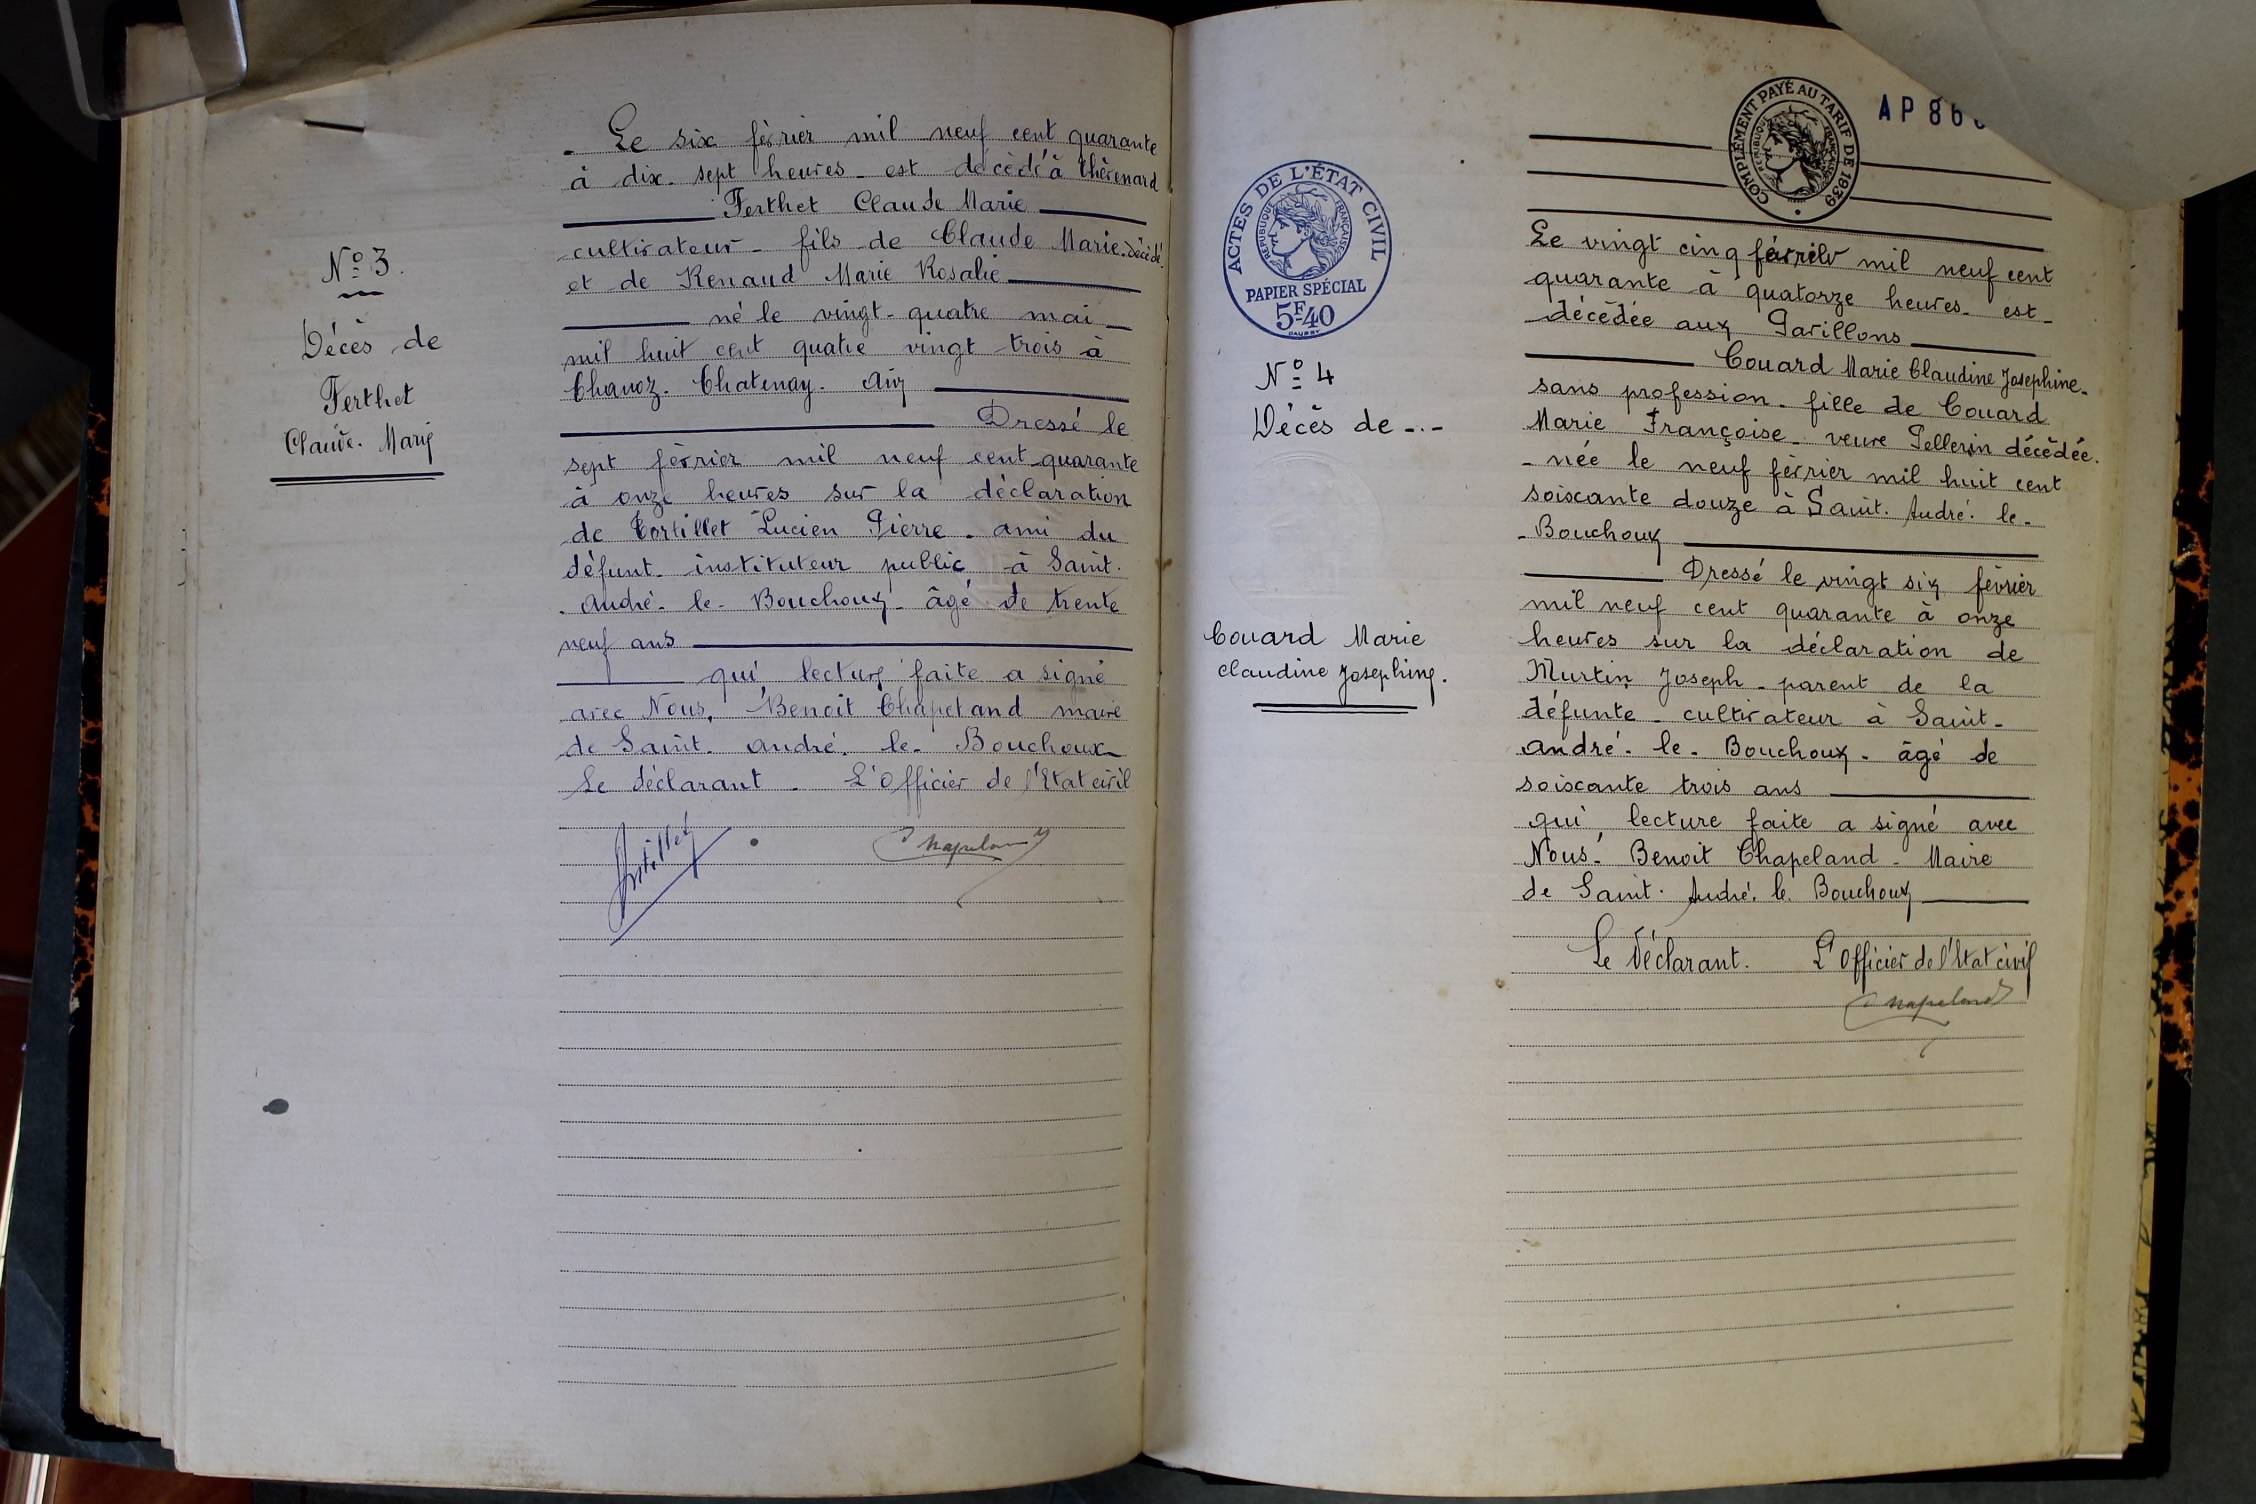 N° 3.
Décès de
Ferthet
Claude. Marie
Le six février mil neuf cent quarante
à dix. sept heures. est décédé à thérenard
Ferthet Claude Marie
cultivateur. fils de Claude Marie. décédé.
et de Renaud Marie Rosalie
né le vingt. quatre mai
mil huit cent quatre vingt trois à
Chanoz. Chatenay. Ain
Dressé le
sept février mil neuf cent quarante
à onze heures sur la déclaration
de Tortillet Lucien Pierre. ami du
défunt. instituteur public à Saint.
André. le. Bouchoux. âgé de trente
neuf ans
qui, lecture faite a signé
avec Nous, Benoit Chapeland maire
de Saint. André. le. Bouchoux
Le déclarant. L'Officier de l'Etat civil
Chapeland
COMPLÉMENT PAYÉ AU TARIF DE 1939
RÉPUBLIQUE FRANÇAISE
AP 86
ACTES DE L'ÉTAT CIVIL
RÉPUBLIQUE FRANÇAISE
PAPIER SPÉCIAL
5F40
N° 4
Décès de
Couard Marie
Claudine Josephine.
Le vingt cinq mil neuf cent
quarante à quatorze heures. est
décédée aux Pavillons
Couard Marie Claudine Josephine.
sans profession. fille de Couard
Marie Françoise. veuve Pellerin décédée.
née le neuf février mil huit cent
soixante douze à Saint. André. le.
Bouchoux
Dressé le vingt six février
mil neuf cent quarante à onze
heures sur la déclaration de
Murtin Joseph. parent de la
défunte. cultivateur à Saint.
André. le. Bouchoux. âgé de
soixante trois ans
qui, lecture faite a signé avec
Nous. Benoit Chapeland. Maire
de Saint. André. le. Bouchoux
Le Déclarant. L'Officier de l'Etat civil
Chapeland